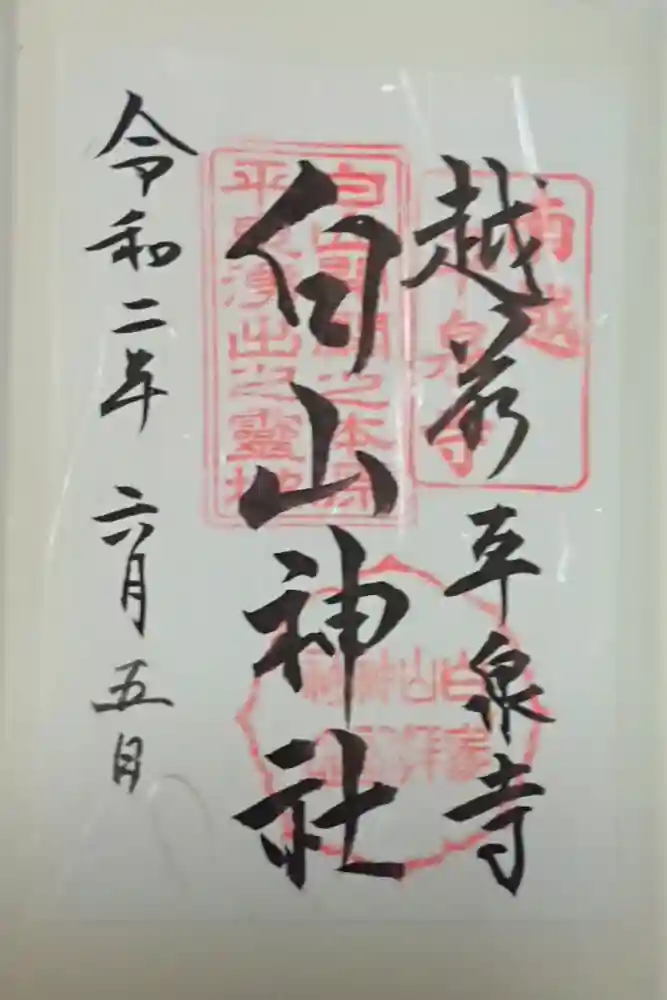 越前 平泉寺
南越
平泉寺
白山神社
白山開闢之本源
平泉湧出之霊地
令和二年 六月 五日